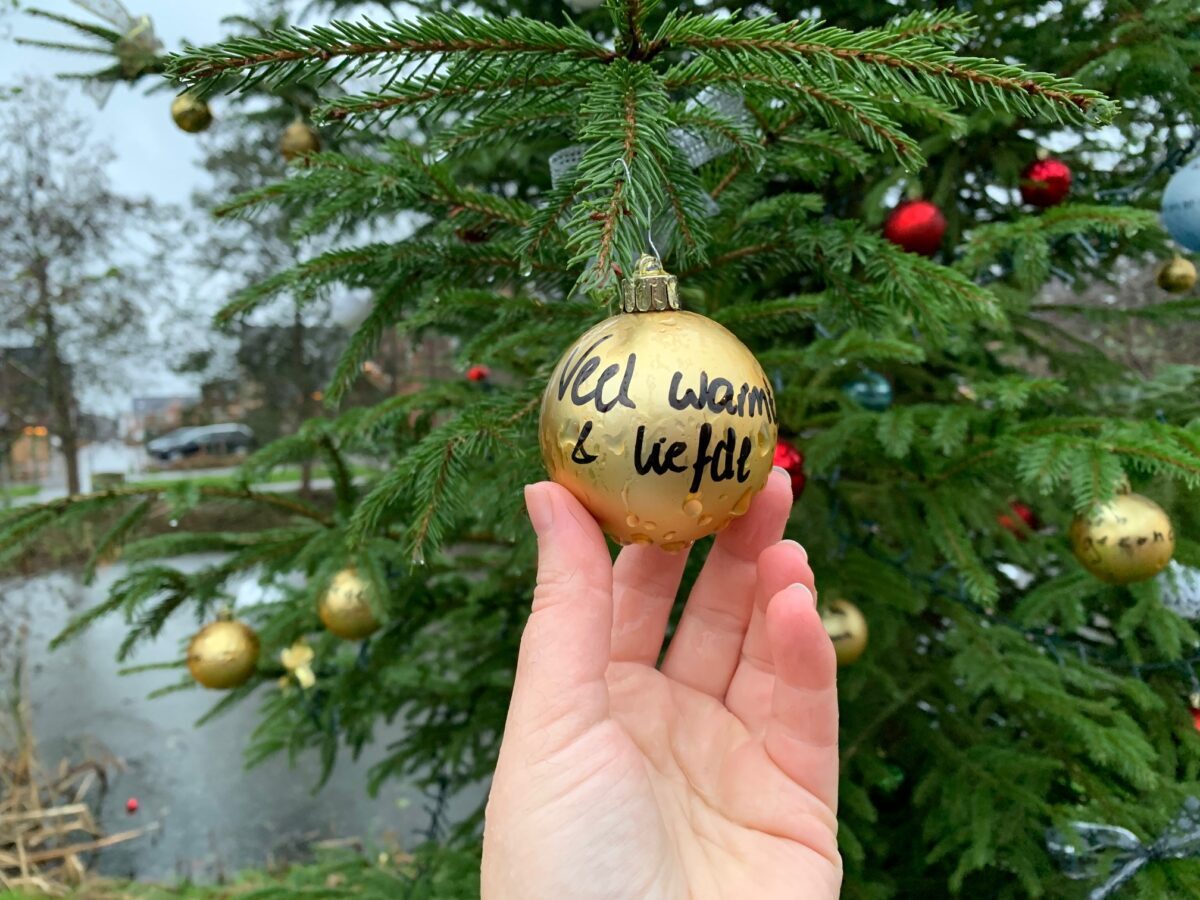 Veel warmt
& liefde